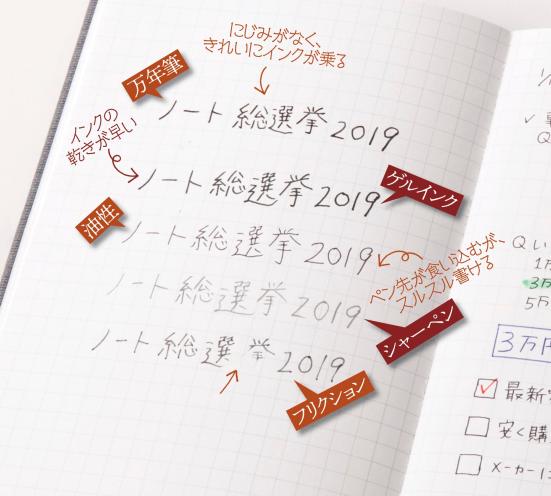 にじみがなく、
きれいにインクが乗る
万年筆
ノート 総選挙 2019
インクの
乾きが早い
ノート 総選挙 2019
ゲルインク
油性
ノート 総選挙 2019
ペン先が食い込むが、
スルスル書ける
ノート 総選挙 2019
シャーペン
ノート 総選挙 2019
フリクション
Q
Q い
1万
3万
5万
3万円
最新
安く購
メーカーに